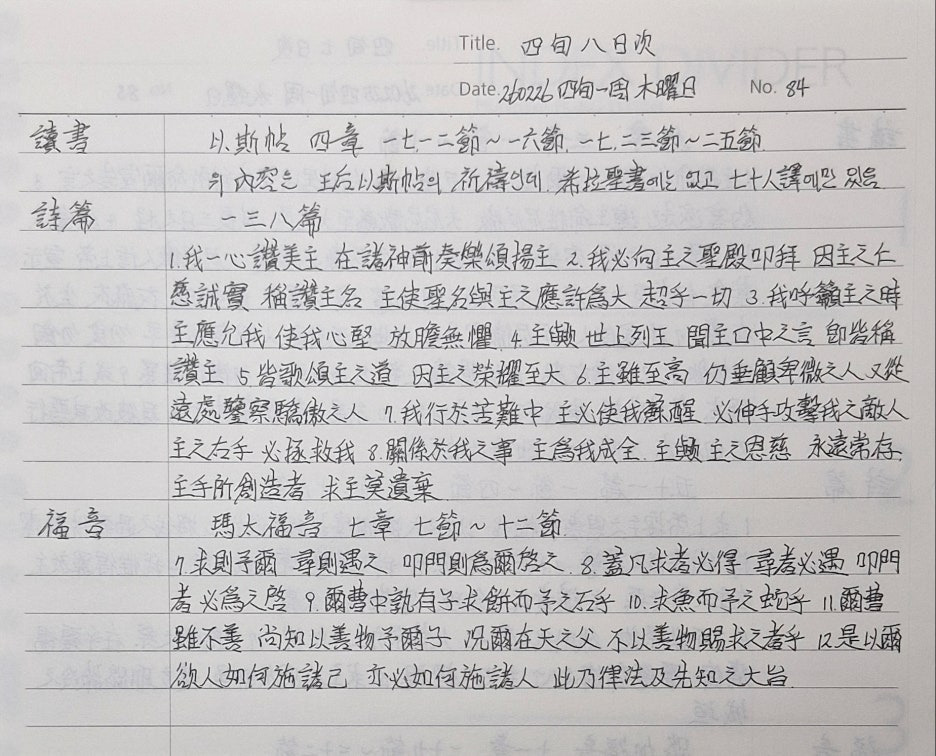 Title. 四旬八日次
Date. 260226 四旬一周 木曜日 No. 84
讀書 以斯帖 四章 一七.一二節~一六節. 一七.二三節~二五節
의 內容은 王后以斯帖의 祈禱인데. 希拉聖書에는 없고 七十人譯에만 있음
詩篇 一三八篇
1.我一心讚美主 在諸神前奏樂頌揚主 2.我必向主之聖殿叩拜 因主之仁
慈誠實 稱讚主名 主使聖名與主之應許為大 超乎一切 3.我呼籲主之時
主應允我 使我心堅 放膽無懼. 4.主歟 世上列王 聞主口中之言 卽皆稱
讚主 5.皆歌頌主之道 因主之榮耀至大 6.主雖至高 仍垂顧卑微之人 又從
遠處鑒察驕傲之人 7.我行於苦難中 主必使我蘇醒 必伸手攻擊我之敵人
主之右手 必拯救我 8.關係於我之事 主爲我成全. 主歟 主之恩慈 永遠常存
主手所創造者 求主莫遺棄.
福音 瑪太福音 七章 七節~十二節.
7.求則予爾 尋則遇之 叩門則爲爾啓之. 8.蓋凡求者必得 尋者必遇 叩門
者 必爲之啓 9.爾曹中孰有子求餅而予之石乎 10.求魚而予之蛇乎 11.爾曹
雖不善 尚知以善物予爾子 况爾在天之父 不以善物賜求之者乎 12.是以爾
欲人如何施諸己 亦必如何施諸人 此乃律法及先知之大旨.